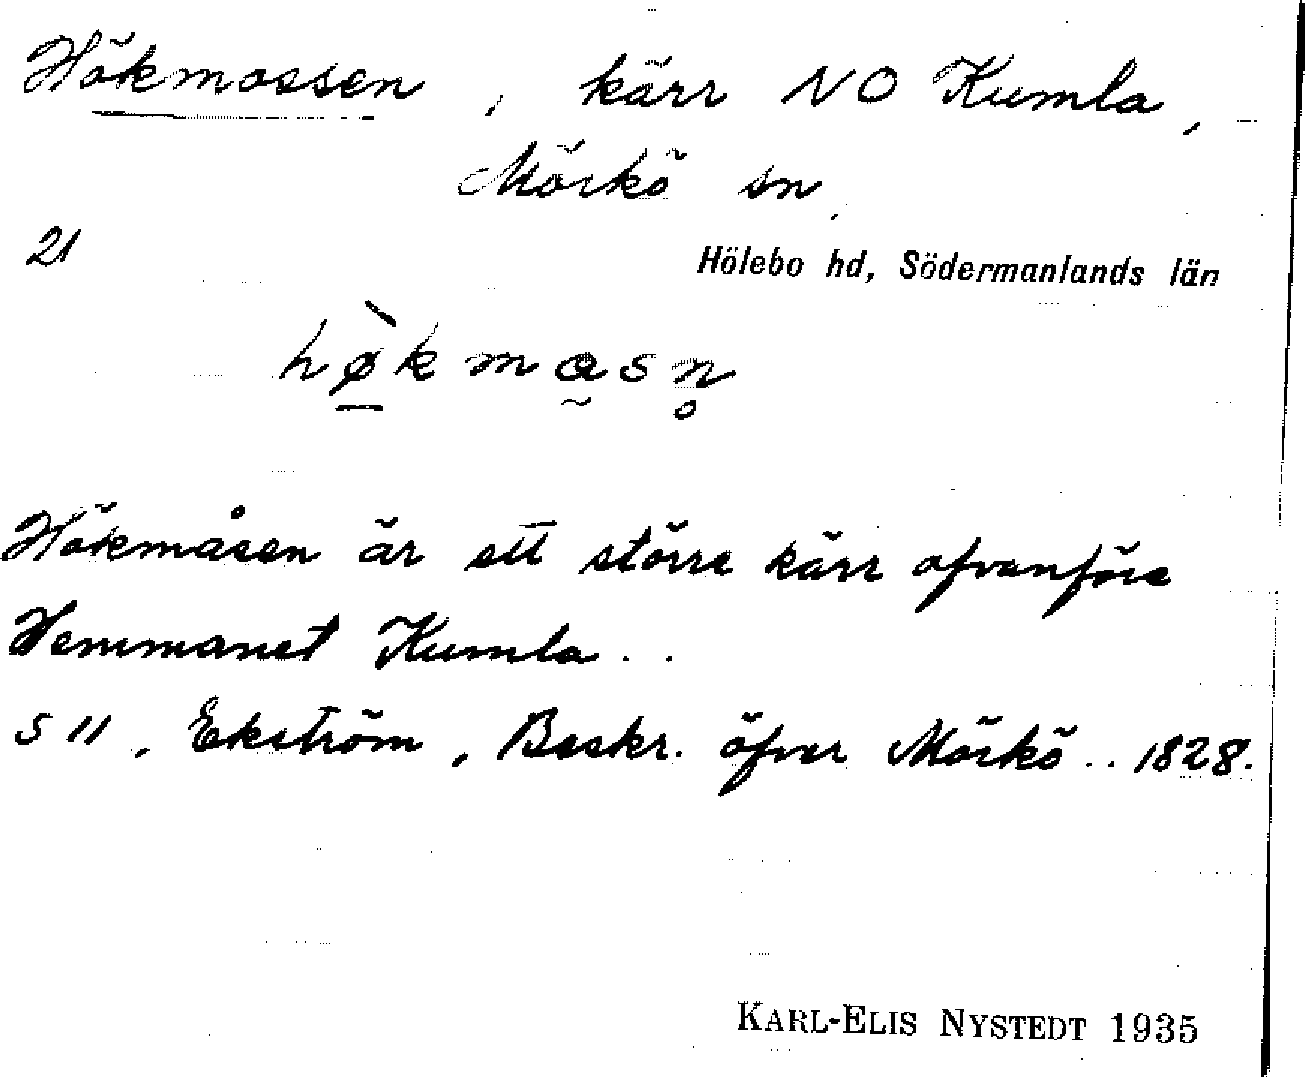 Hökmossen, kärr NO Kumla,
Mörkö sn,
21
Hölebo hd, Södermanlands län
hø̱̀kmɑ̰sn̥
Hökmåsen är ett större kärr ofvanföre
Hemmanet Kumla..
S 11, Ekström, Beskr. öfver Mörkö.. 1828.
KARL-ELIS NYSTEDT 1935